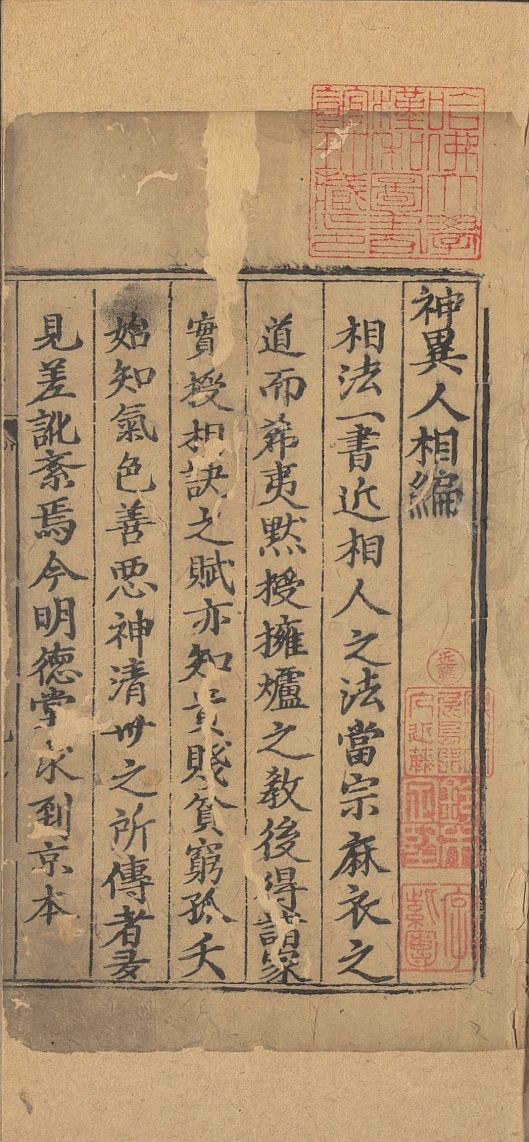 神異人相編
相法一書近相人之法當宗麻衣之
道而希夷默授擁爐之教後得諸家
實授相訣之賦亦知貴賤貧窮孤夭
始知氣色善惡神清世之所傳者多
見差訛紊焉今明德堂求到京本
哈佛大學漢和圖書館珍藏印